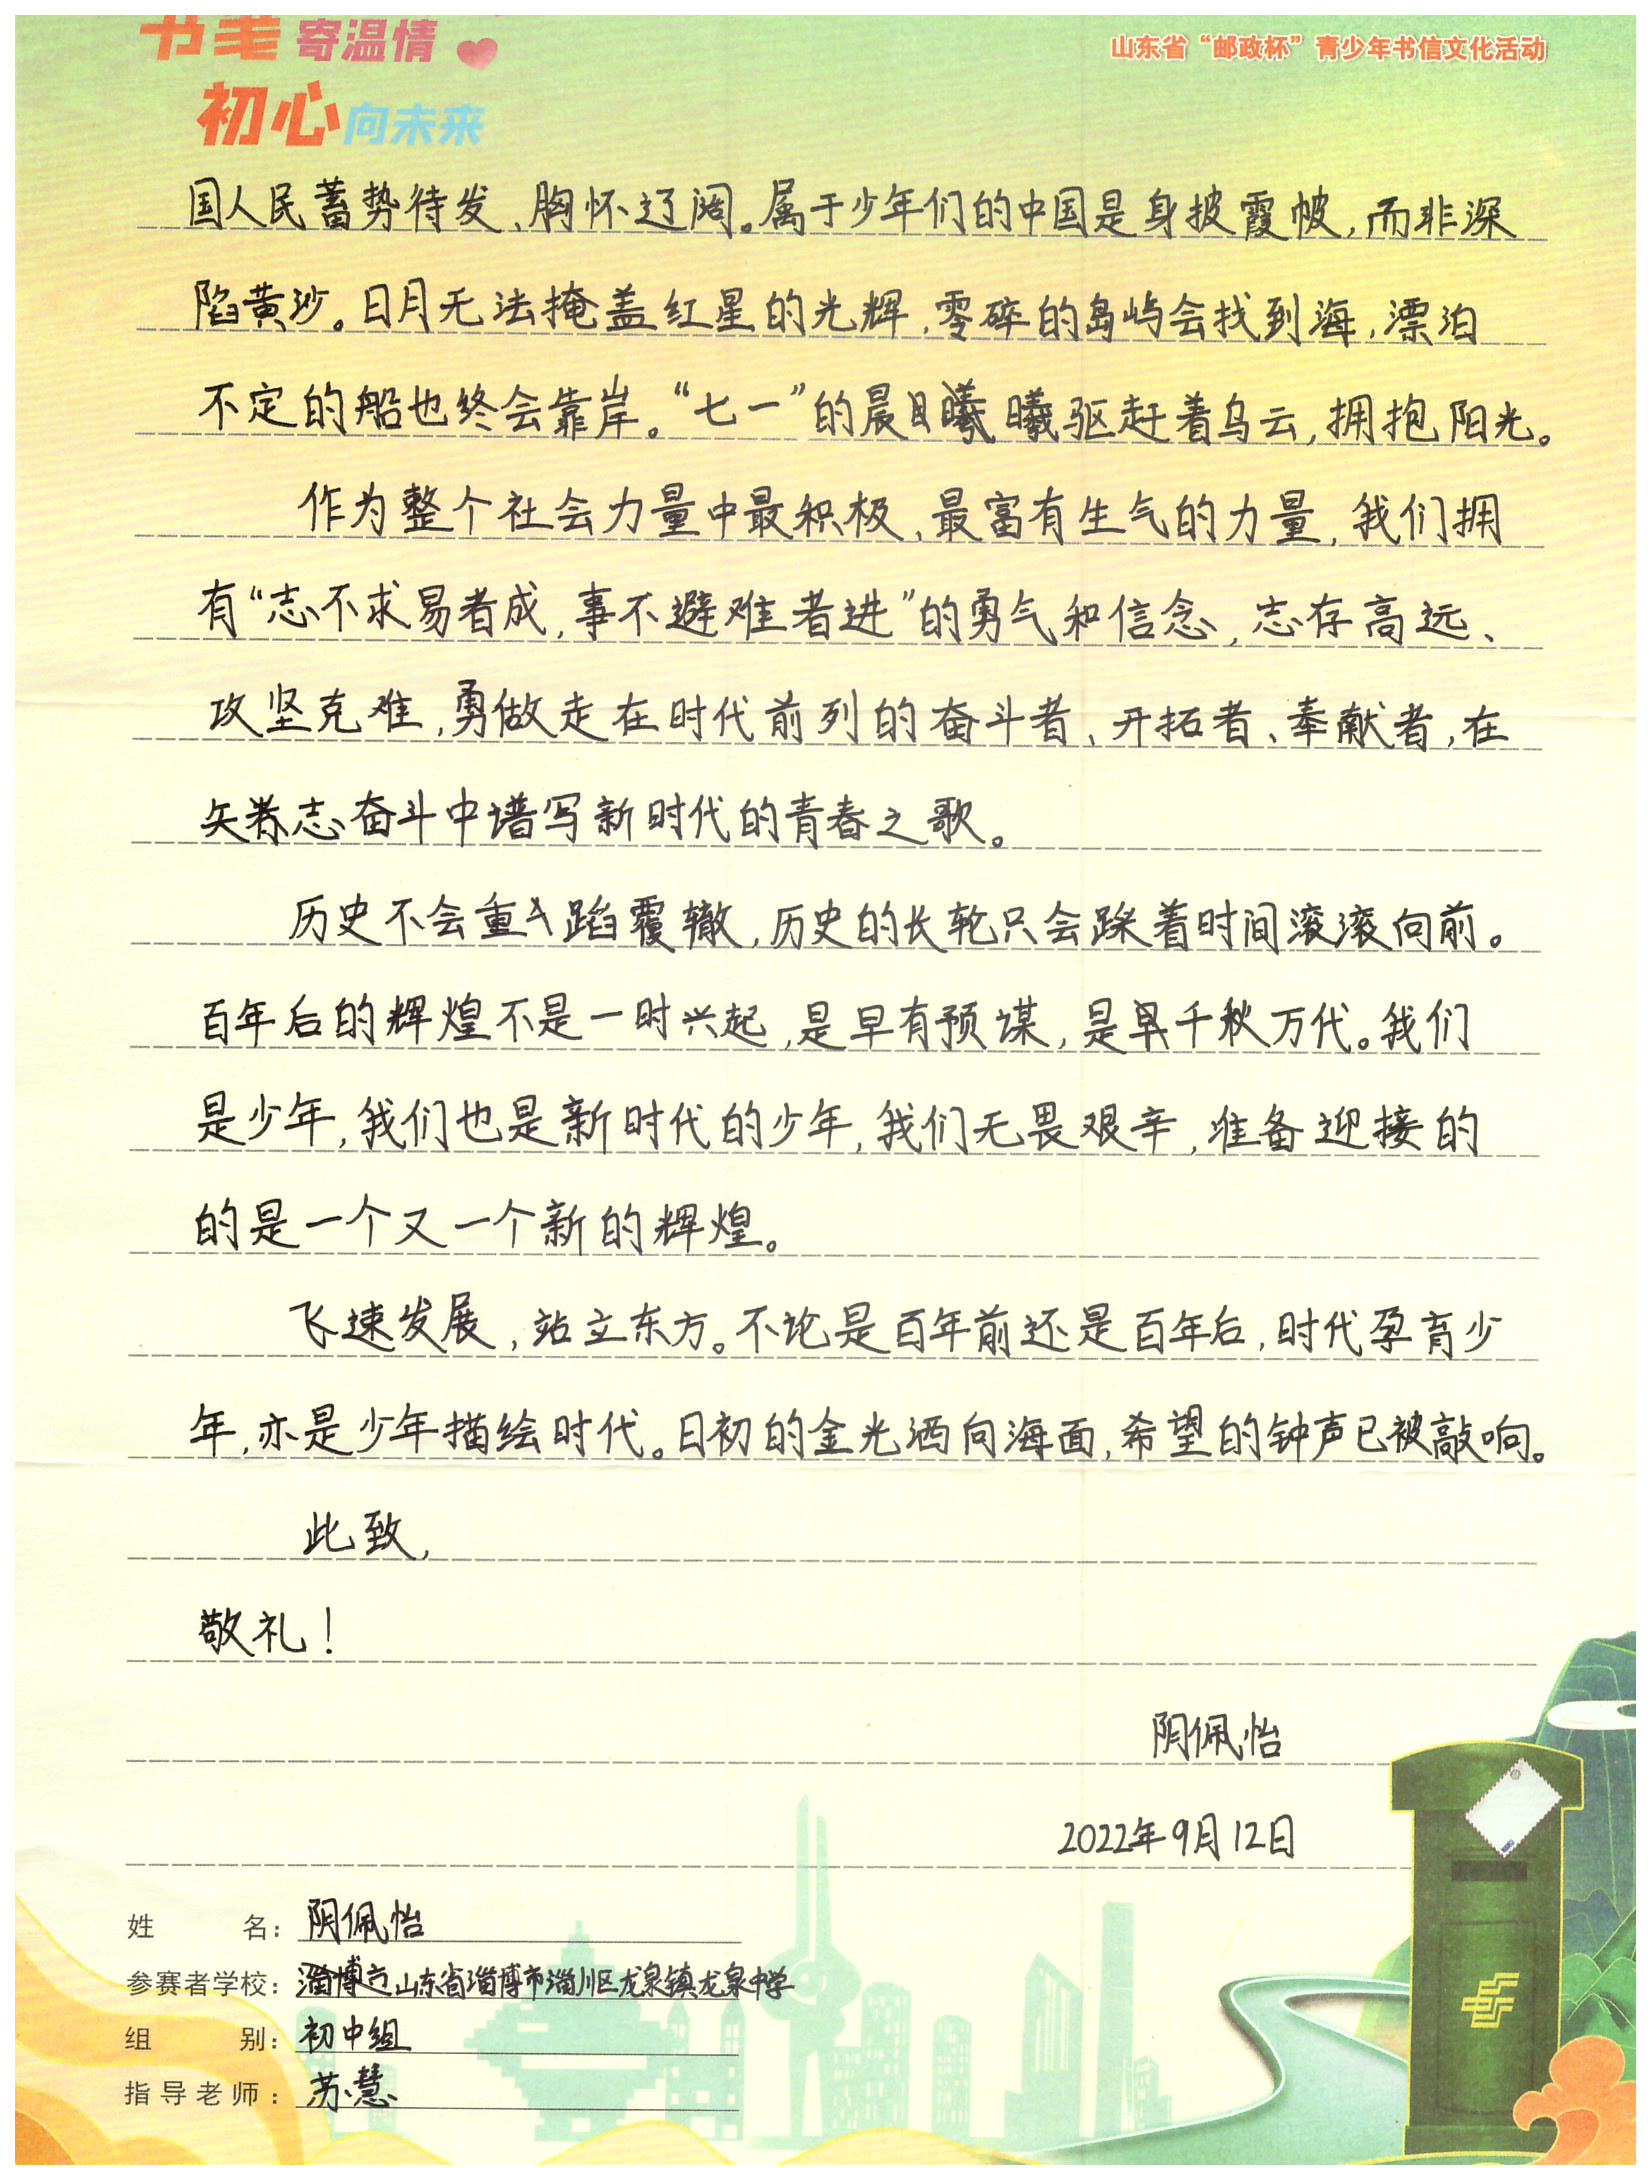 书笔寄温情
山东省“邮政杯”青少年书信文化活动
初心向未来
国人民蓄势待发、胸怀辽阔。属于少年们的中国是身披霞帔,而非深
陷黄沙。日月无法掩盖红星的光辉,零碎的岛屿会找到海,漂泊
不定的船也终会靠岸。“七一”的晨曦驱赶着乌云,拥抱阳光。
作为整个社会力量中最积极、最富有生气的力量,我们拥
有“志不求易者成,事不避难者进”的勇气和信念,志存高远、
攻坚克难,勇做走在时代前列的奋斗者、开拓者、奉献者,在
矢志奋斗中谱写新时代的青春之歌。
历史不会重蹈覆辙,历史的长轮只会踩着时间滚滚向前。
百年后的辉煌不是一时兴起,是早有预谋,是千秋万代。我们
是少年,我们也是新时代的少年,我们无畏艰辛,准备迎接的
的是一个又一个新的辉煌。
飞速发展,站立东方。不论是百年前还是百年后,时代孕育少
年,亦是少年描绘时代。日初的金光洒向海面,希望的钟声已被敲响。
此致,
敬礼!
阴佩怡
2022年9月12日
姓名:阴佩怡
参赛者学校:山东省淄博市淄川区龙泉镇龙泉中学
组别:初中组
指导老师:苏慧